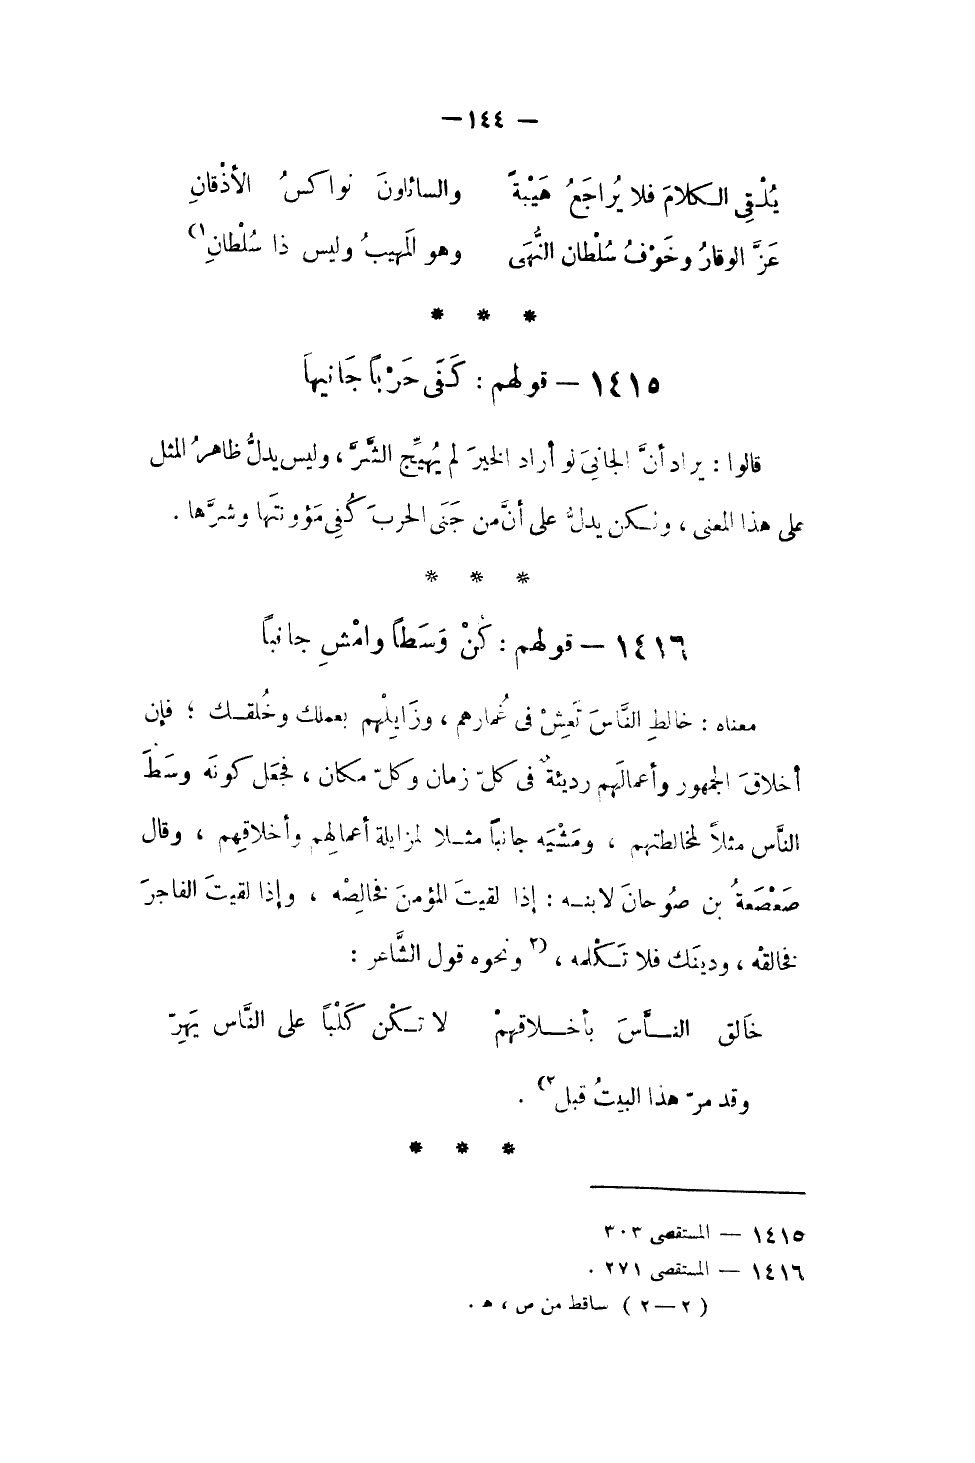 — ١٤٤ —
يُلْـقِى الـكلامَ فلا يُراجَعُ هَيْبةً والسائلونَ نواكسُ الأذْقانِ
عَزَّ الوقارُ وخَوْفُ سُلْطان النُّهَى وهو المَهيبُ وليس ذا سُلْطانِ ١)
* * *
١٤١٥ — قولهم : كَفَى حَرْباً جَانيهاَ
قالوا : يراد أنَّ الجانِىَ لو أراد الخيرَ لم يُهيِّج الشَّرَّ ، وليس يدلُّ ظاهرُ المثل
على هذا المعنى ، ولـكن يدلُّ على أنَّ من جَنَى الحربَ كُفِى مَؤونتَها وشرَّها .
* * *
١٤١٦ — قولهم : كُنْ وَسَطاً وامْشِ جانباً
معناه : خالطِ النَّاسَ تَعِشْ فى غُمارهم ، وزَايلْهم بعملك وخُلقـك ؛ فإن
أخلاقَ الجمهور وأعمالَهم رديئةٌ فى كلّ زمان وكلّ مكان ، فجعَل كونَه وسَطَ
النَّاس مثلاً لمخالطتهم ، ومَشْيَه جانباً مثـلا لمزايلة أعمالهم وأخلاقِهم ، وقال
صَعْصَعةُ بن صُوحانَ لابنـه : إذا لقيتَ المؤمنَ فخالِصْه ، وإذا لقيتَ الفاجرَ
فخالقْه ، ودينَك فلا تَـكْلمه ، ٢) ونحوه قول الشَّاعر :
خَالق النــاَّسَ بأخــلاقهمْ لا تـكْن كَلْباً على النَّاس يَهِرّ
وقد مرّ هذا البيتُ قبل ٢) .
* * *
١٤١٥ — المستقصى ٣٠٣
١٤١٦ — المستقصى ٢٧١ .
( ٢—٢ ) ساقط من ص ، هـ .